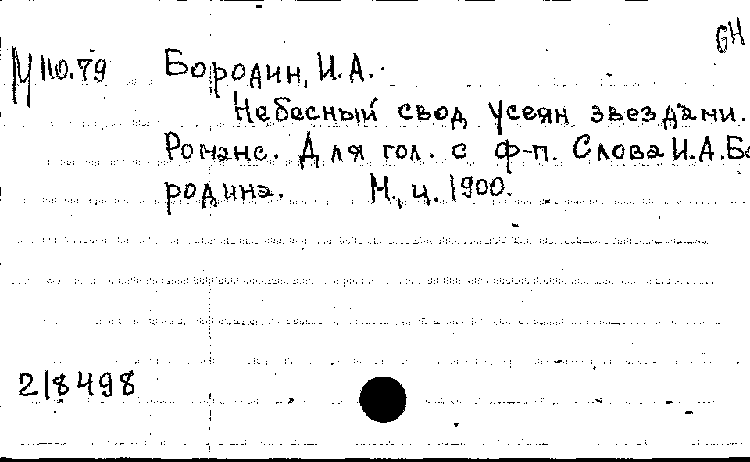 GH
М 110.79 Бородин, И.А.
Небесный свод усеян звездами.
Романс. Для гол. с ф-п. Слова И.А.Бо
родина. М., ц. 1900.
218498